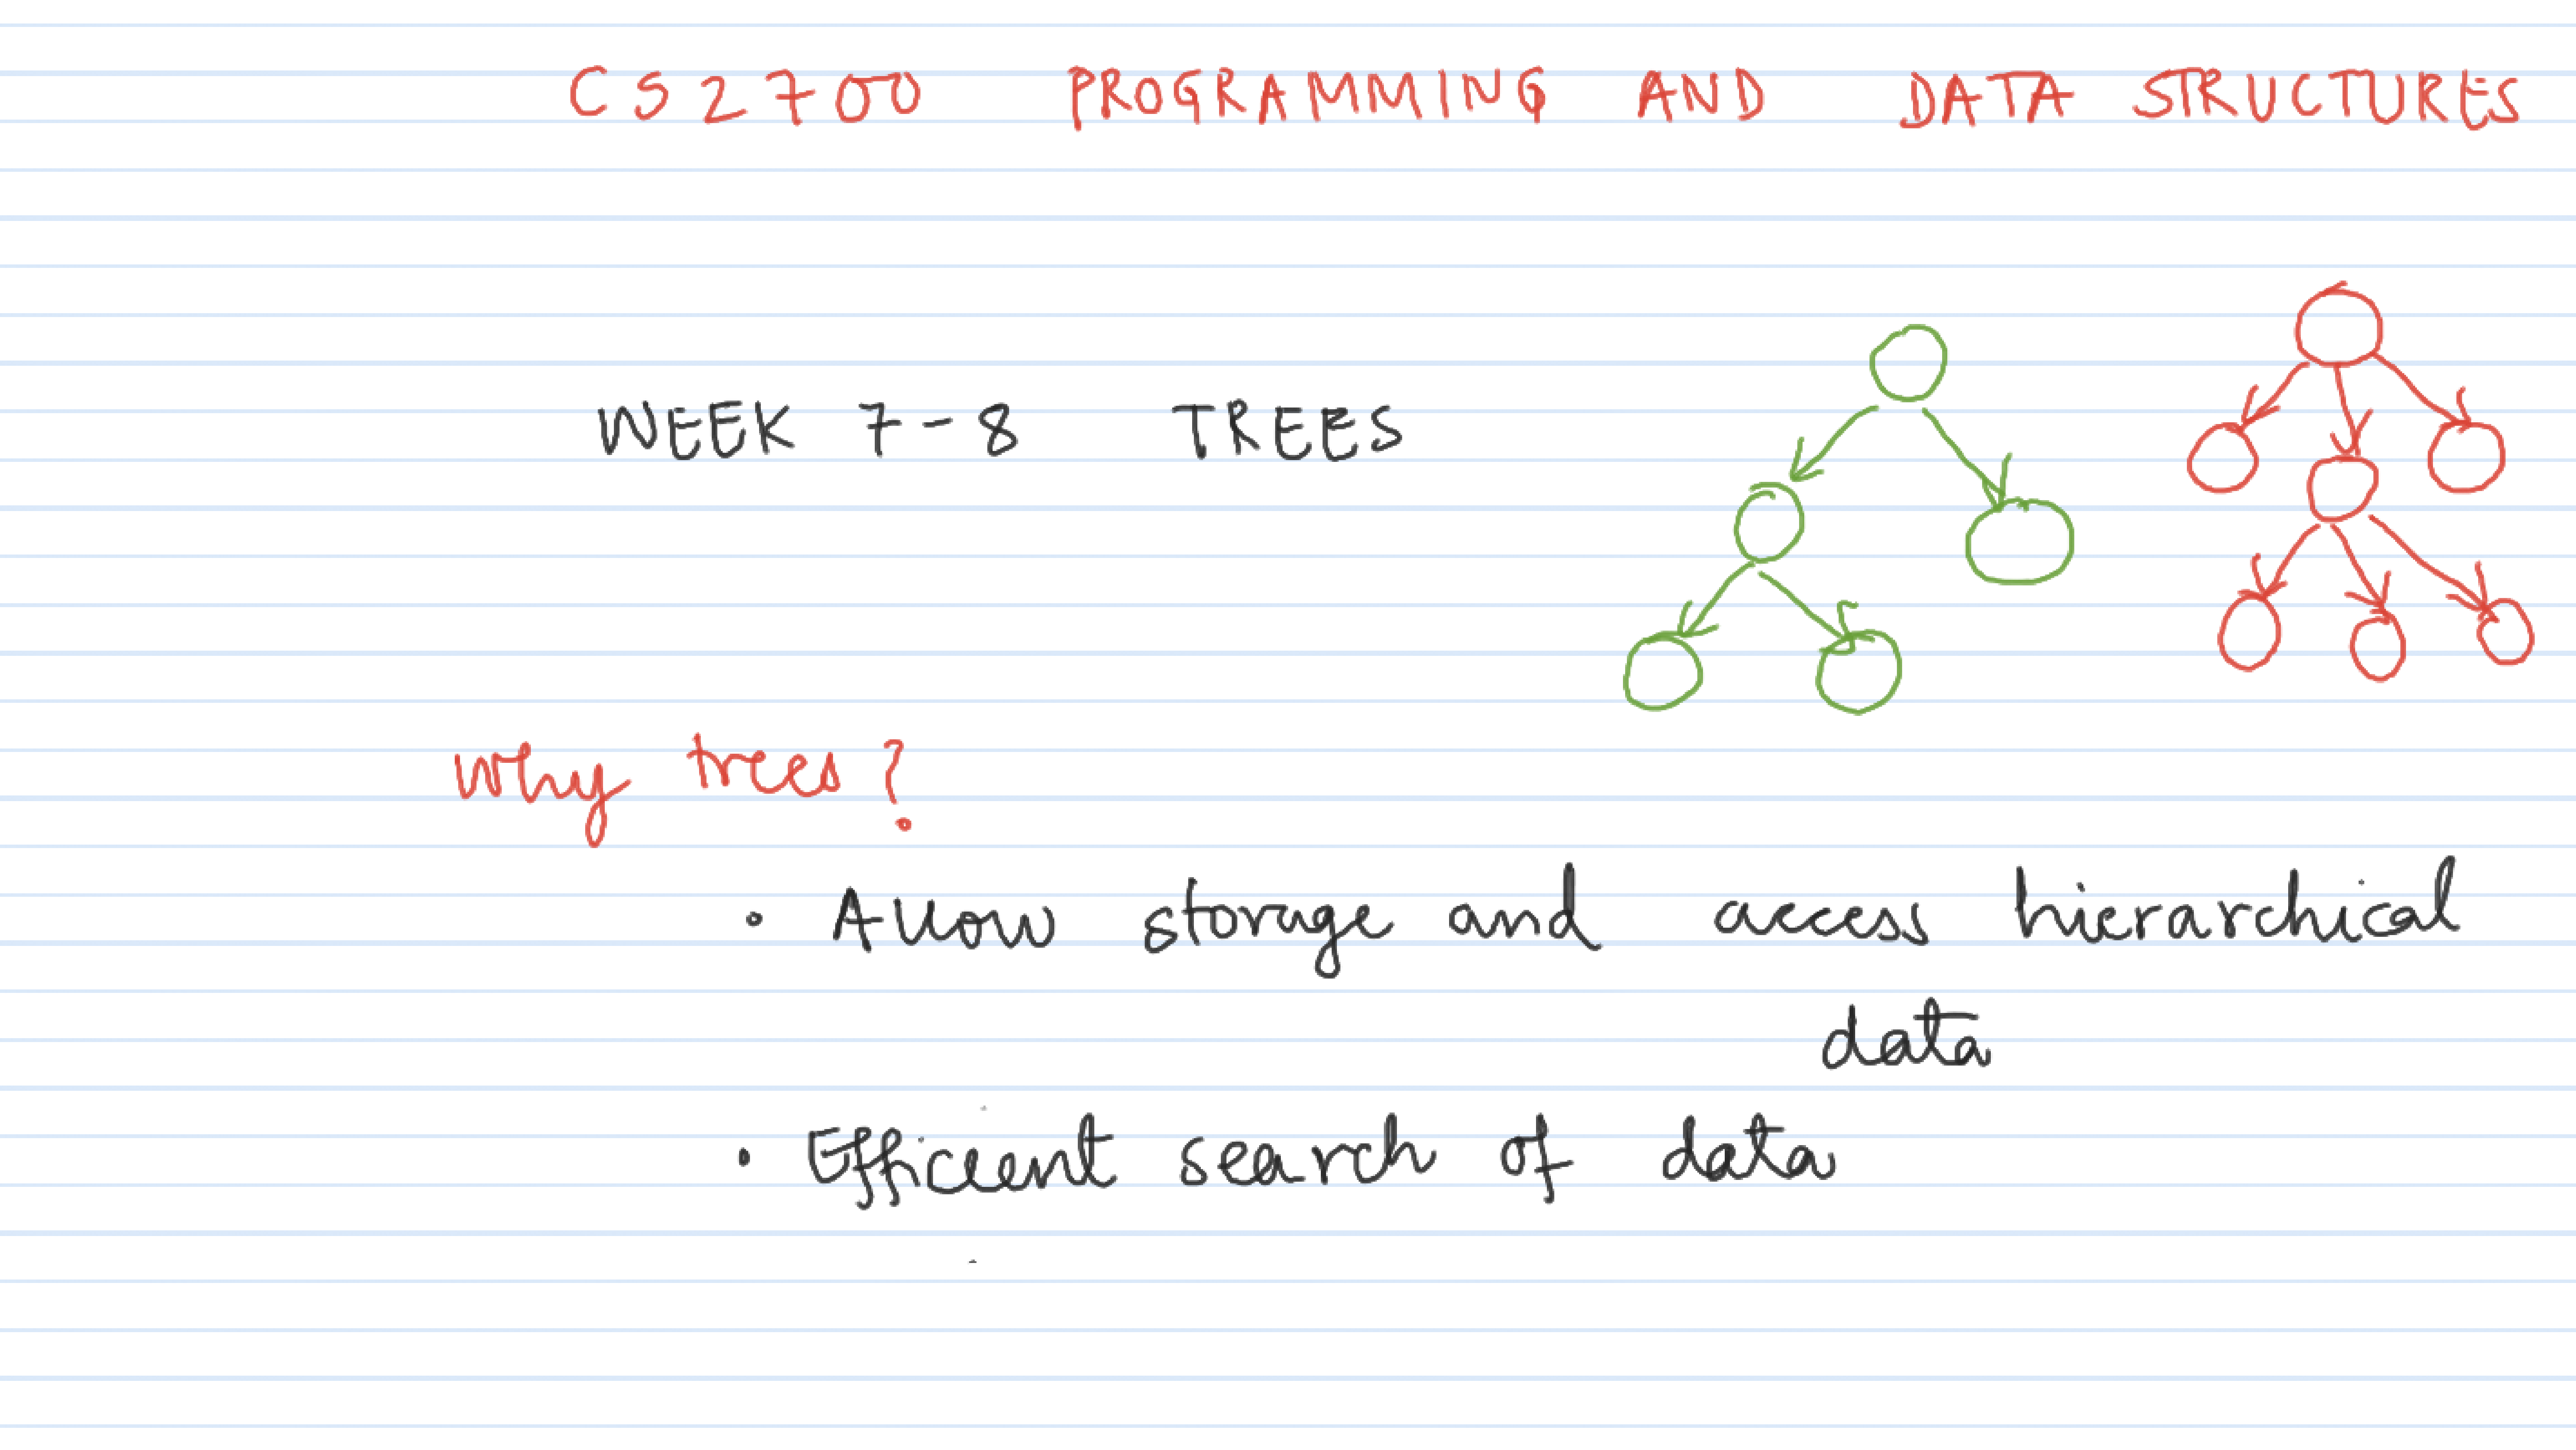 CS2700 PROGRAMMING AND DATA STRUCTURES
WEEK 7-8 TREES
Why trees?
• Allow storage and access hierarchical
data
• Efficient search of data